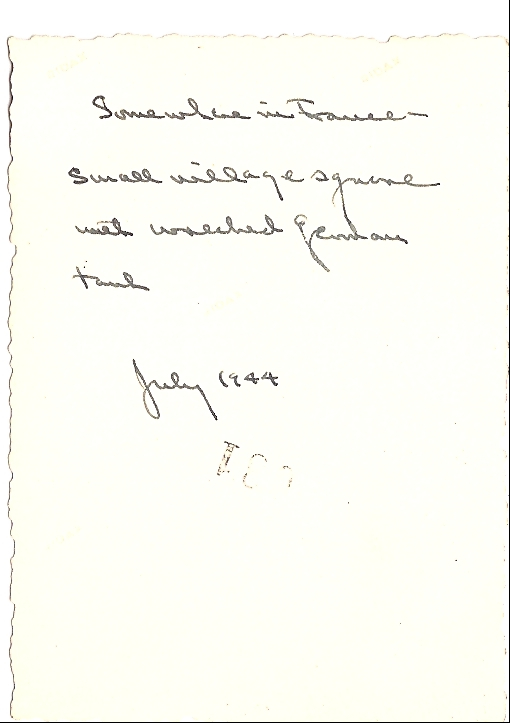 Somewhere in France—
Small village square
with wrecked German
tank
July 1944